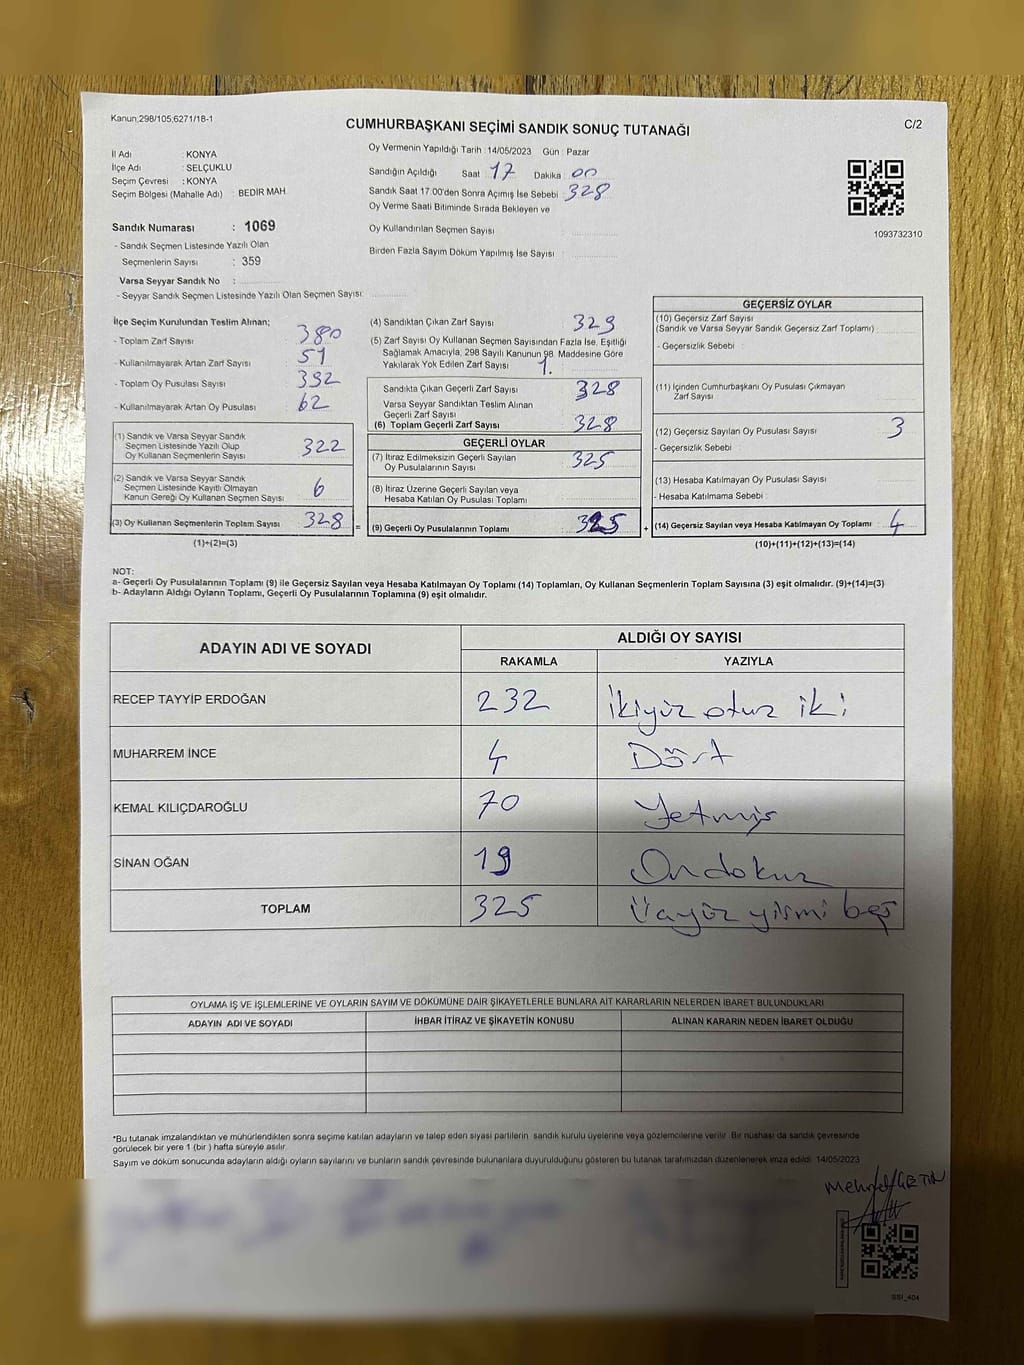 Kanun;298/105,6271/18-1
CUMHURBAŞKANI SEÇİMİ SANDIK SONUÇ TUTANAĞI
C/2
İl Adı : KONYA
İlçe Adı : SELÇUKLU
Seçim Çevresi : KONYA
Seçim Bölgesi (Mahalle Adı) : BEDİR MAH.
Oy Vermenin Yapıldığı Tarih : 14/05/2023 Gün : Pazar
Sandığın Açıldığı Saat : 17 Dakika : 00
Sandık Saat 17.00'den Sonra Açımış İse Sebebi : 328
Oy Verme Saati Bitiminde Sırada Bekleyen ve
Oy Kullandırılan Seçmen Sayısı :
Birden Fazla Sayım Döküm Yapılmış İse Sayısı :
1093732310
Sandık Numarası : 1069
- Sandık Seçmen Listesinde Yazılı Olan
Seçmenlerin Sayısı : 359
Varsa Seyyar Sandık No :
- Seyyar Sandık Seçmen Listesinde Yazılı Olan Seçmen Sayısı:
İlçe Seçim Kurulundan Teslim Alınan;
- Toplam Zarf Sayısı : 380
- Kullanılmayarak Artan Zarf Sayısı : 51
- Toplam Oy Pusulası Sayısı : 392
- Kullanılmayarak Artan Oy Pusulası : 62
(1) Sandık ve Varsa Seyyar Sandık
Seçmen Listesinde Yazılı Olup
Oy Kullanan Seçmenlerin Sayısı : 322
(2) Sandık ve Varsa Seyyar Sandık
Seçmen Listesinde Kayıtlı Olmayan
Kanun Gereği Oy Kullanan Seçmen Sayısı : 6
(3) Oy Kullanan Seçmenlerin Toplam Sayısı : 328 =
(1)+(2)=(3)
(4) Sandıktan Çıkan Zarf Sayısı : 329
(5) Zarf Sayısı Oy Kullanan Seçmen Sayısından Fazla İse, Eşitliği
Sağlamak Amacıyla, 298 Sayılı Kanunun 98. Maddesine Göre
Yakılarak Yok Edilen Zarf Sayısı : 1.
Sandıkta Çıkan Geçerli Zarf Sayısı : 328
Varsa Seyyar Sandıktan Teslim Alınan
Geçerli Zarf Sayısı :
(6) Toplam Geçerli Zarf Sayısı : 328
GEÇERLİ OYLAR
(7) İtiraz Edilmeksizin Geçerli Sayılan
Oy Pusulalarının Sayısı : 325
(8) İtiraz Üzerine Geçerli Sayılan veya
Hesaba Katılan Oy Pusulası Toplamı :
(9) Geçerli Oy Pusulalarının Toplamı : 325 +
GEÇERSİZ OYLAR
(10) Geçersiz Zarf Sayısı
(Sandık ve Varsa Seyyar Sandık Geçersiz Zarf Toplamı) :
- Geçersizlik Sebebi :
(11) İçinden Cumhurbaşkanı Oy Pusulası Çıkmayan
Zarf Sayısı :
(12) Geçersiz Sayılan Oy Pusulası Sayısı : 3
- Geçersizlik Sebebi :
(13) Hesaba Katılmayan Oy Pusulası Sayısı :
- Hesaba Katılmama Sebebi :
(14) Geçersiz Sayılan veya Hesaba Katılmayan Oy Toplamı : 4
(10)+(11)+(12)+(13)=(14)
NOT:
a- Geçerli Oy Pusulalarının Toplamı (9) ile Geçersiz Sayılan veya Hesaba Katılmayan Oy Toplamı (14) Toplamları, Oy Kullanan Seçmenlerin Toplam Sayısına (3) eşit olmalıdır. (9)+(14)=(3)
b- Adayların Aldığı Oyların Toplamı, Geçerli Oy Pusulalarının Toplamına (9) eşit olmalıdır.
ADAYIN ADI VE SOYADI
ALDIĞI OY SAYISI
RAKAMLA YAZIYLA
RECEP TAYYİP ERDOĞAN 232 İkiyüz otuz iki
MUHARREM İNCE 4 Dört
KEMAL KILIÇDAROĞLU 70 Yetmiş
SİNAN OĞAN 19 Ondokuz
TOPLAM 325 Üçyüz yirmi beş
OYLAMA İŞ VE İŞLEMLERİNE VE OYLARIN SAYIM VE DÖKÜMÜNE DAİR ŞİKAYETLERLE BUNLARA AİT KARARLARIN NELERDEN İBARET BULUNDUKLARI
ADAYIN ADI VE SOYADI İHBAR İTİRAZ VE ŞİKAYETİN KONUSU ALINAN KARARIN NEDEN İBARET OLDUĞU
*Bu tutanak imzalandıktan ve mühürlendikten sonra seçime katılan adayların ve talep eden siyasi partilerin sandık kurulu üyelerine veya gözlemcilerine verilir. Bir nüshası da sandık çevresinde
görülecek bir yere 1 (bir ) hafta süreyle asılır.
Sayım ve döküm sonucunda adayların aldığı oyların sayılarını ve bunların sandık çevresinde bulunanlara duyurulduğunu gösteren bu tutanak tarafımızdan düzenlenerek imza edildi. 14/05/2023
Mehmet ÇETİN
SSI_404